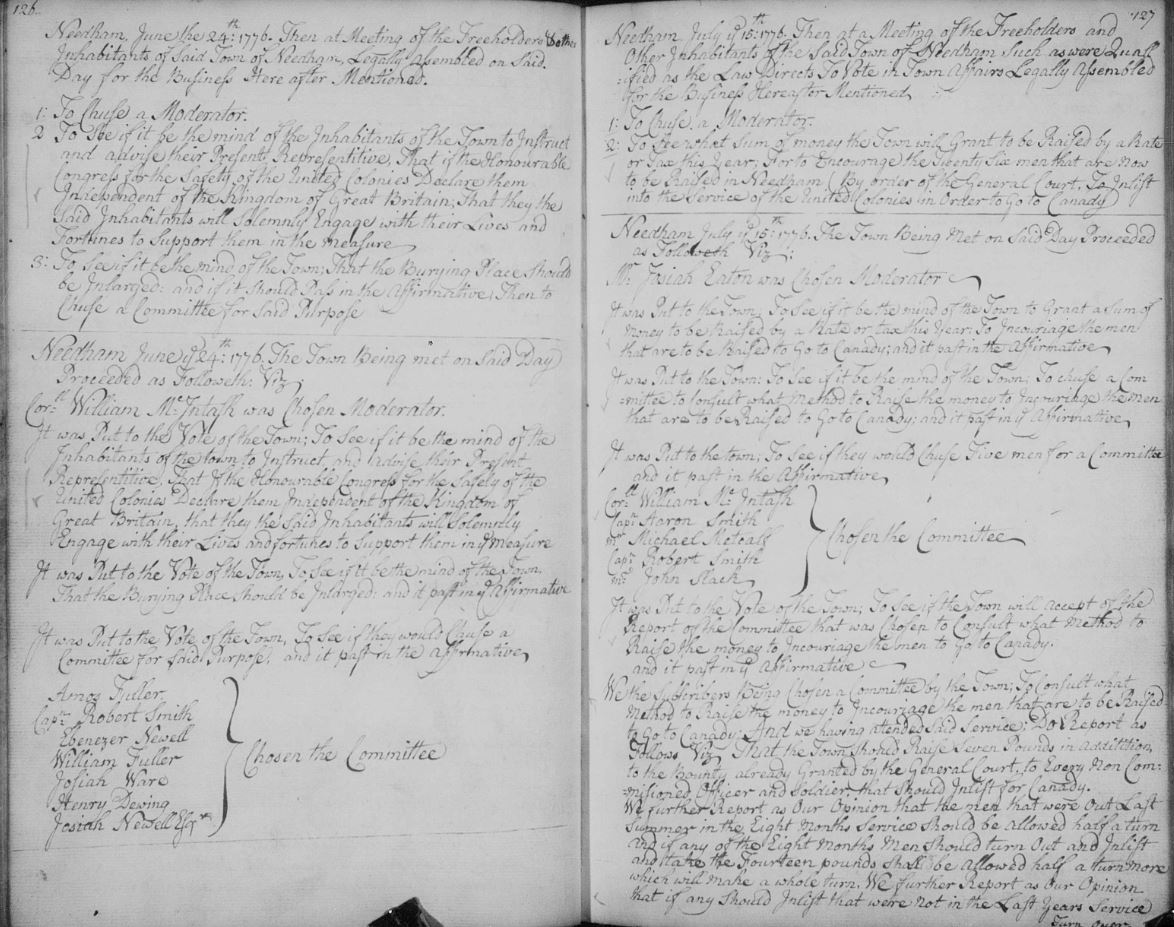 126
Needham, June the 24th: 1776. Then at Meeting of the Freeholders & other
Inhabitants of Said Town of Needham, Legally Assembled on Said
Day for the Business Here after Mentioned.
1: To Chuse a Moderator.
2 To See if it be the mind of the Inhabitants of the Town to Instruct
and advise their Present Representitive, That if the Honourable
Congress for the Safety of the United Colonies Declare them
Independent of the Kingdom of Great Britain; That they the
Said Inhabitants will Solemnly Engage with their Lives and
Fortunes to Support them in the measure
3: To See if it be the mind of the Town; That the Burying Place Should
be Inlarged: and if it Should Pass in the Affirmative; Then to
Chuse a Committee for Said Purpose
Needham June ye 24th: 1776. The Town Being met on Said Day
Proceeded as Followeth: Viz
Corll William Mc Intash was Chosen Moderator.
It was Put to the Vote of the Town; To See if it be the mind of the
Inhabitants of the town to Instruct, and advise their Present
Representitive, That if the Honourable Congress for the Safety of the
United Colonies Declare them Independent of the Kingdom of
Great Britain, that they the Said Inhabitants will Solemnly
Engage with their Lives and fortunes to Support them in ye Measure
It was Put to the Vote of the Town, To See if it be the mind of the Town.
That the Burying Place Should be Inlarged: and it past in ye Affirmative
It was Put to the Vote of the Town, To See if they would Chuse a
Committee for Said Purpose; and it past in the Affirmative
Amos Fuller
Capn Robert Smith
Ebenezer Newell
William Fuller
Josiah Ware
Henry Dewing
Josiah Newell Esqr
Chosen the Committee
127
Needham July ye 15th: 1776. Then at a Meeting of the Freeholders and
Other Inhabitants of the Said Town of Needham Such as were Quall
=ified as the Law Directs To Vote in Town Affairs Legally Assembled
for the Business Hereafter Mentioned
1: To Chuse a Moderator.
2: To See what Sum of money the Town will Grant to be Raised by a Rate
or Tax this Year; For to Encourage the Twenty Six men that are now
to be Raised in Needham (By order of the General Court, To Inlist
into the Service of the United Colonies in Order to Go to Canady
Needham July ye 15th: 1776. The Town Being Met on Said Day Proceeded
as Followeth Viz:
Mr. Josiah Eaton was Chosen Moderator
It was Put to the Town; To See if it be the mind of the Town to Grant a Sum of
Money to be Raised by a Rate or tax this Year; To Incouriage the men
that are to be Raised to Go to Canady; and it past in the Affirmative
It was Put to the Town: To See if it be the mind of the Town; To chuse a Com
=mittee to Consult what Method to Raise the money to Incouriage the men
that are to be Raised to Go to Canady; and it past in ye Affirmative
It was Put to the town; To See if they would Chuse Five men for a Committee
and it past in the Affirmative
Corll William Mc Intash
Capn Aaron Smith
mr Michael Metcalf
Capn Robert Smith
mr John Slack
Chosen the Committee
It was Put to the Vote of the Town; To See if the Town will accept of the
Report of the Committee that was Chosen to Consult what Method to
Raise the money to Incouriage the men to Go to Canady.
and it past in ye Affirmative
We the Subscribers Being Chosen a Committee by the Town; To Consult what
Method to Raise the money to Incouriage the men that are to be Raised
to Go to Canady; And we having attended Said Service; Do Report as
Follows Viz That the Town Should Raise Seven Pounds in addittion
to the Bounty already Granted by the General Court, to Every Non Com=
=misioned Officer and Soldier, that Should Inlist for Canady.
We further Report as Our Opinion that the men that were Out Last
Summer in the Eight Months Service Should be Allowed half a turn
and if any of the Eight Months Men Should turn Out and Inlist
and take the Fourteen pounds Shall be Allowed half a turn more
which will make a whole turn. We further Report as Our Opinion
that if any Should Inlist that were not in the Last Years Service
Turn Over